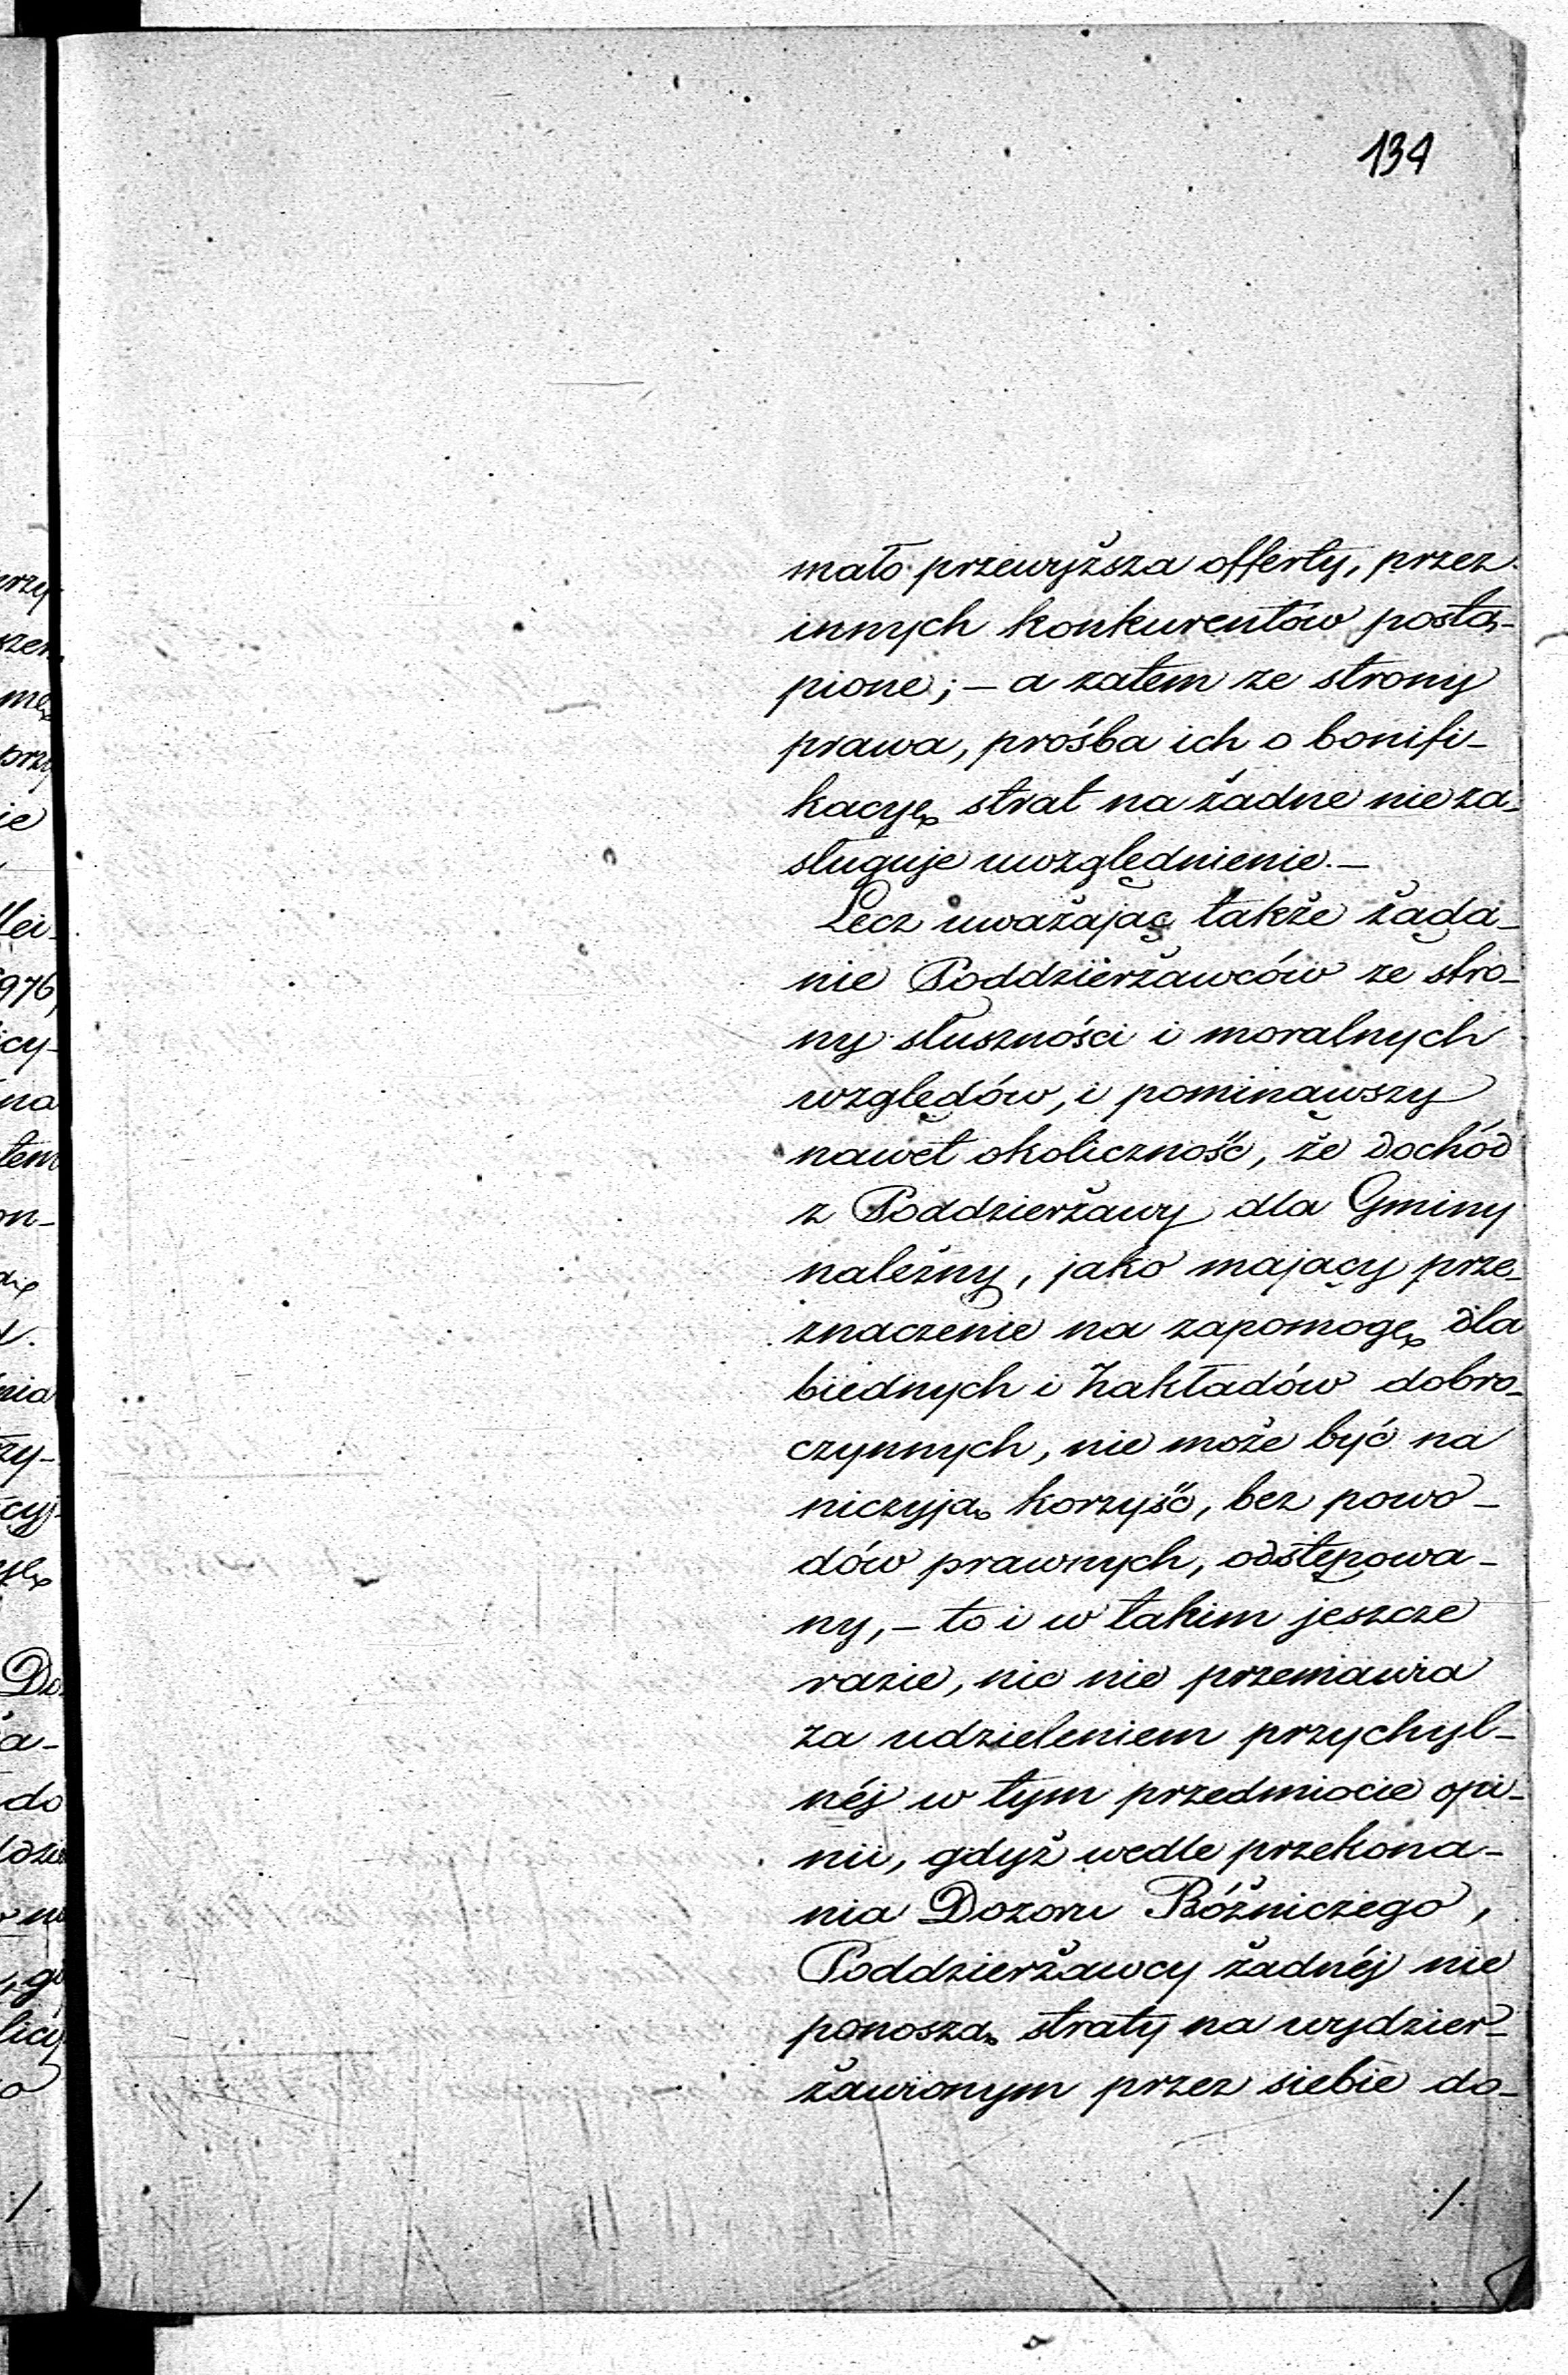 134
mało przewyższa offerty, przez
innych konkurentów postą-
pione; – a zatem ze strony
prawa, prośba ich o bonifi-
kacyę strat na żadne nie za-
sługuje uwzględnienie. –
Lecz uważając także żąda-
nie Poddzierżawców ze stro-
ny słuszności i moralnych
względów, i pominąwszy
nawet okoliczność, że dochód
z Poddzierżawy dla Gminy
należny, jako mający prze-
znaczenie na zapomogę dla
biednych i Zakładów dobro-
czynnych, nie może być na
niczyją korzyść, bez powo-
dów prawnych, odstępowa-
ny, – to i w takim jeszcze
razie, nic nie przemawia
za udzieleniem przychyl-
néj w tym przedmiocie opi-
nii, gdyż wedle przekona-
nia Dozoru Bóżniczego,
Poddzierżawcy żadnéj nie
ponoszą straty na wydzier-
żawionym przez siebie do-
:/.